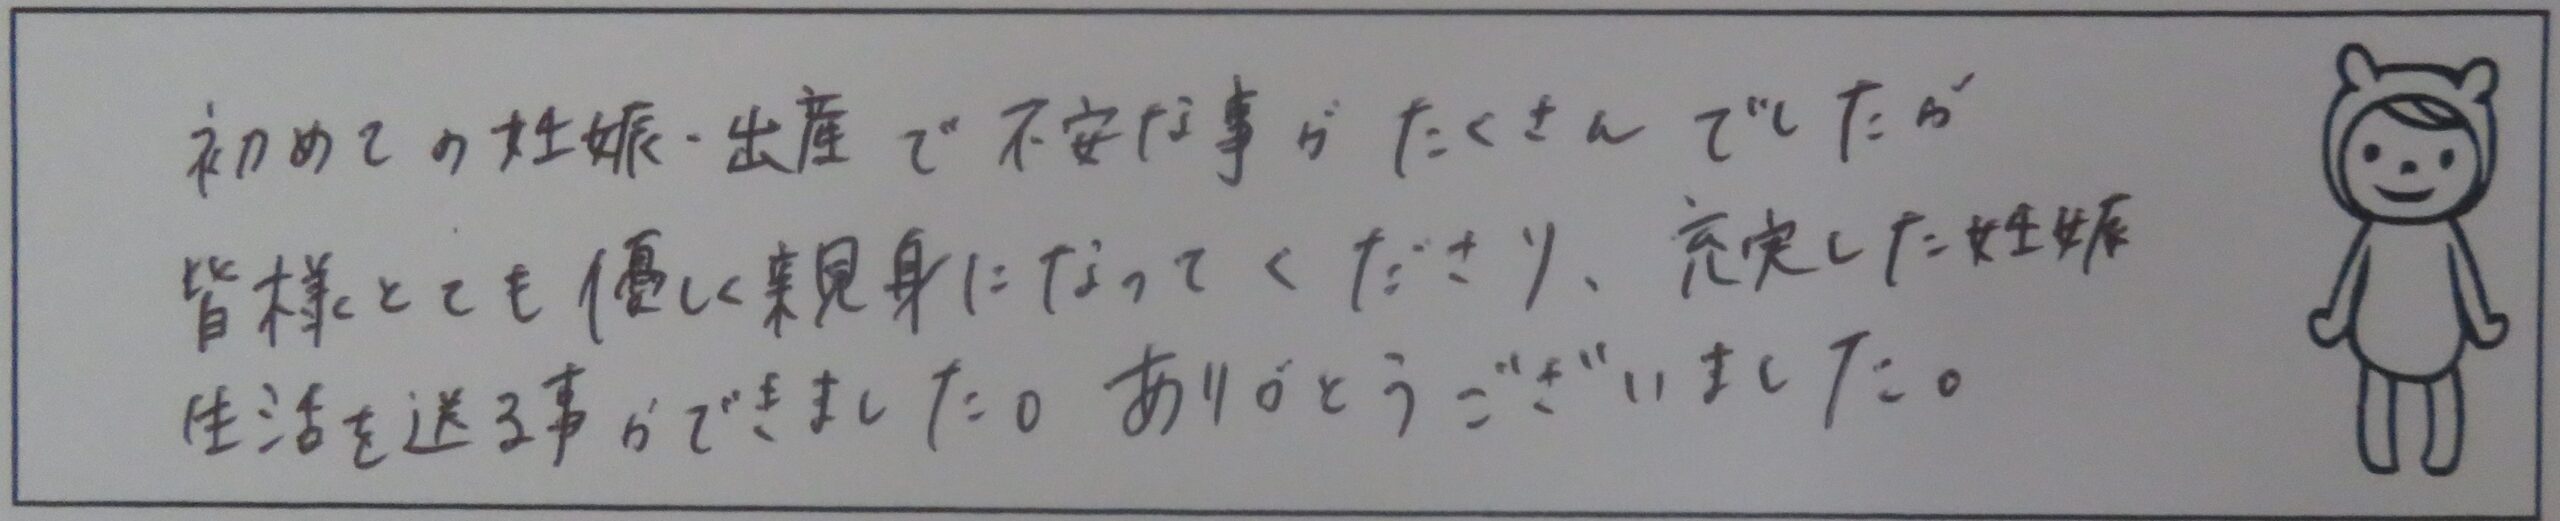 初めての妊娠・出産で不安な事がたくさんでしたが
皆様とても優しく親身になってくださり、充実した妊娠
生活を送る事ができました。ありがとうございました。